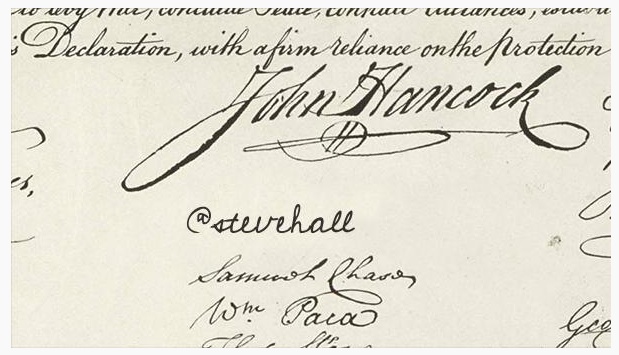 to levy War, conclude Peace, contract Alliances,
Declaration, with a firm reliance on the Protection
John Hancock
@stevehall
Samuel Chase
Wm Paca
Geo